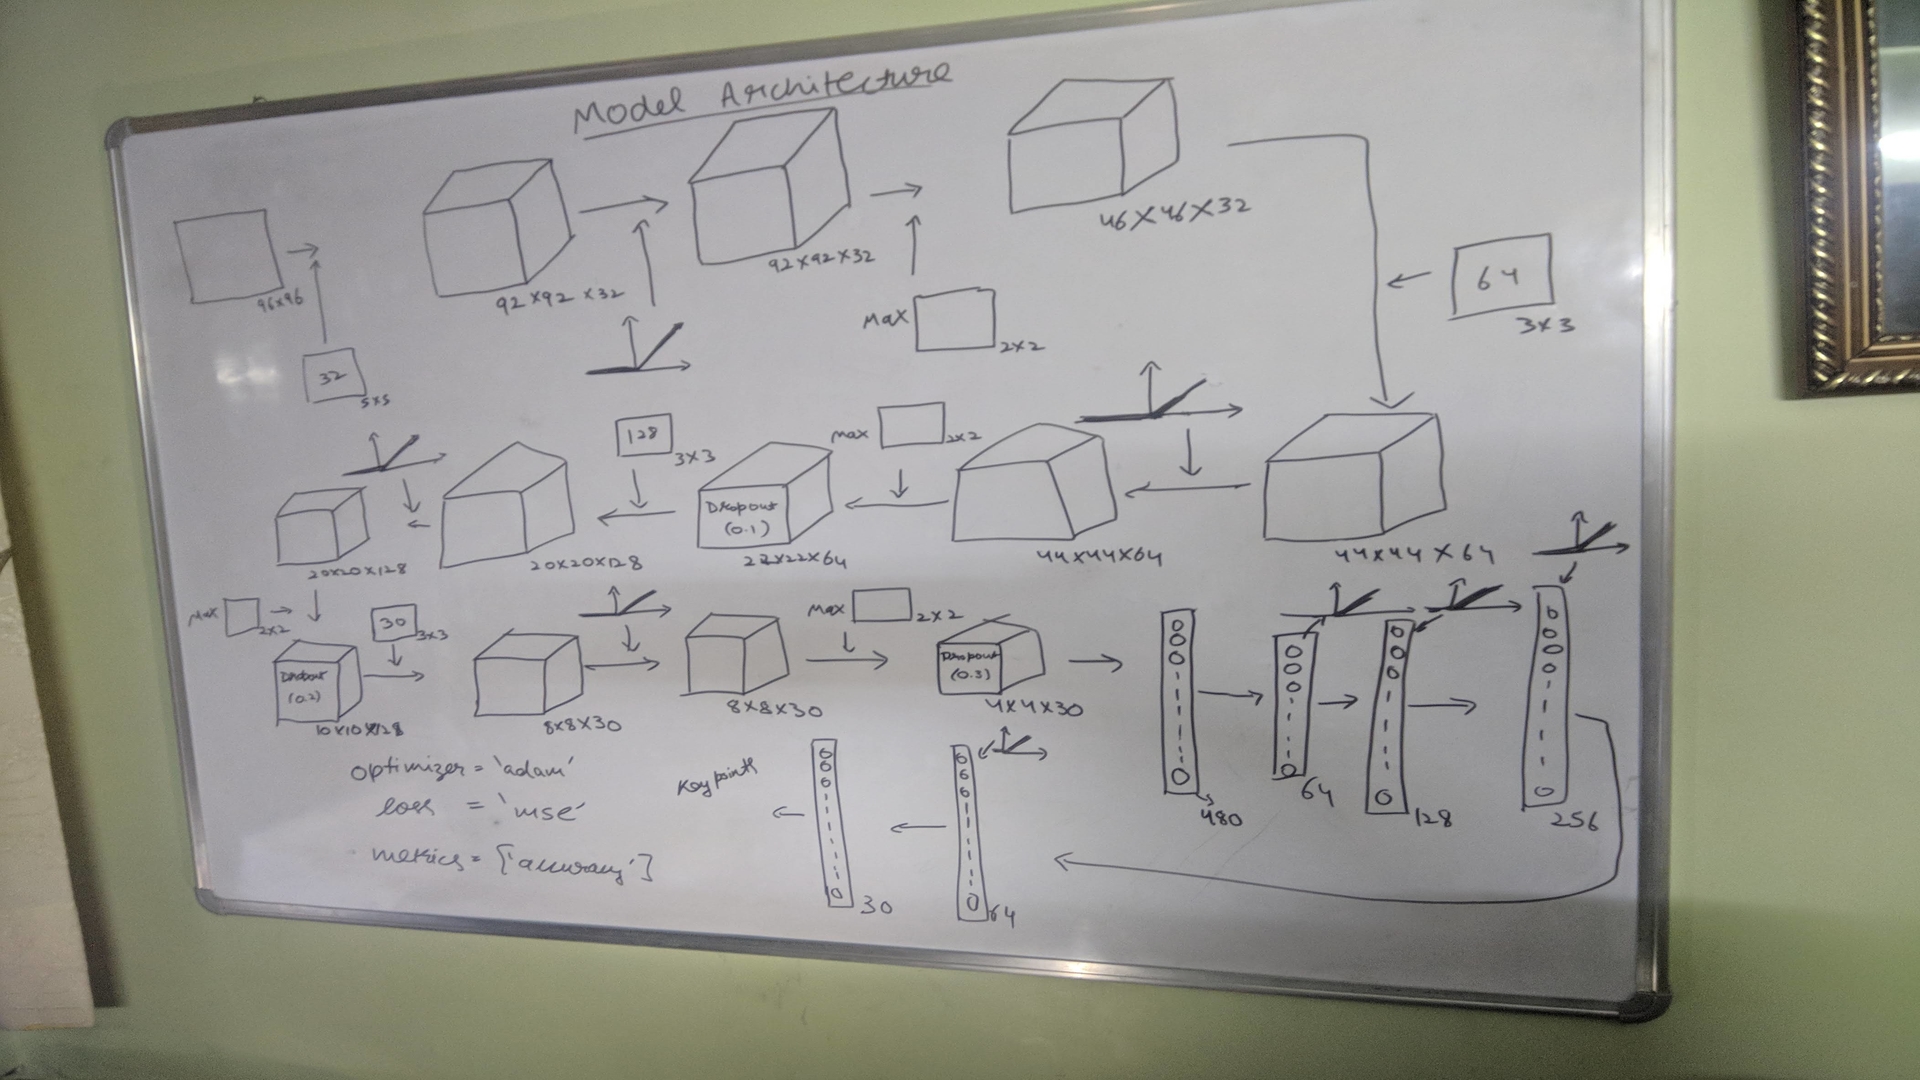 Model Architecture
96x96
32
5x5
92x92x32
92x92x32
Max
2x2
46x46x32
64
3x3
44x44x64
44x44x64
Max
2x2
Dropout
(0.1)
22x22x64
128
3x3
20x20x128
20x20x128
Max
2x2
Dropout
(0.2)
10x10x128
30
3x3
8x8x30
8x8x30
Max
2x2
Dropout
(0.3)
4x4x30
480
64
128
256
64
30
Key points
optimizer = 'adam'
loss = 'mse'
metrics = ['accuracy']